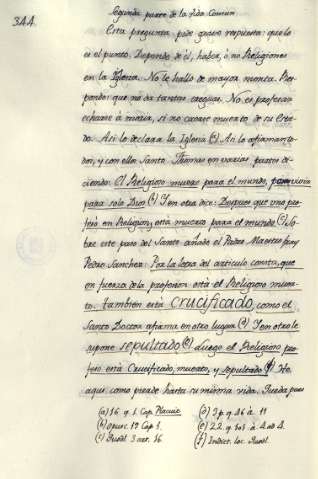 344.
Segunda parte de la Vida Comun.
Esta pregunta pide grave respuesta: que lo
es el punto. Depende de él, haber, ó no Religiones
en la Iglesia. No le hallo de mayor monta. Res-
pondo: que no da tantas orejas. No es profesar
echarse á morir, si no carece muerto de su Esta-
do. Asi lo declara la Iglesia (a) Asi lo afirman to-
dos, y con ella Santo Thomas en varias partes di-
ciendo: El Religioso muere para el mundo, vivia
para solo Dios (b) Y en otra dice: Despues que uno pro-
fesó en Religion, está muerto para el mundo (c) So-
bre este paso del Santo añade el Padre Maestro fray
Pedro Sanchez: Por la letra del articulo consta, que
en fuerza de la profesion está el Religioso muer-
to. tambien está CRUCIFICADO, como el
Santo Doctor afirma en otro lugar (d) Y en otro le
supone SEPULTADO (e) Luego el Religioso pro-
feso está Crucificado, muerto, y sepultado (f) He
aqui como pierde hasta su misma vida. Pueda pues
(a) 16 q. 1 Cap. Placuit
(b) opusc. 19 Cap. 1.
(c) Quodl 3 art. 16
(d) 3 p q. 46 á 11
(e) 22 q. 101 á 4 ad 4.
(f) Indict. loc. Quodl.